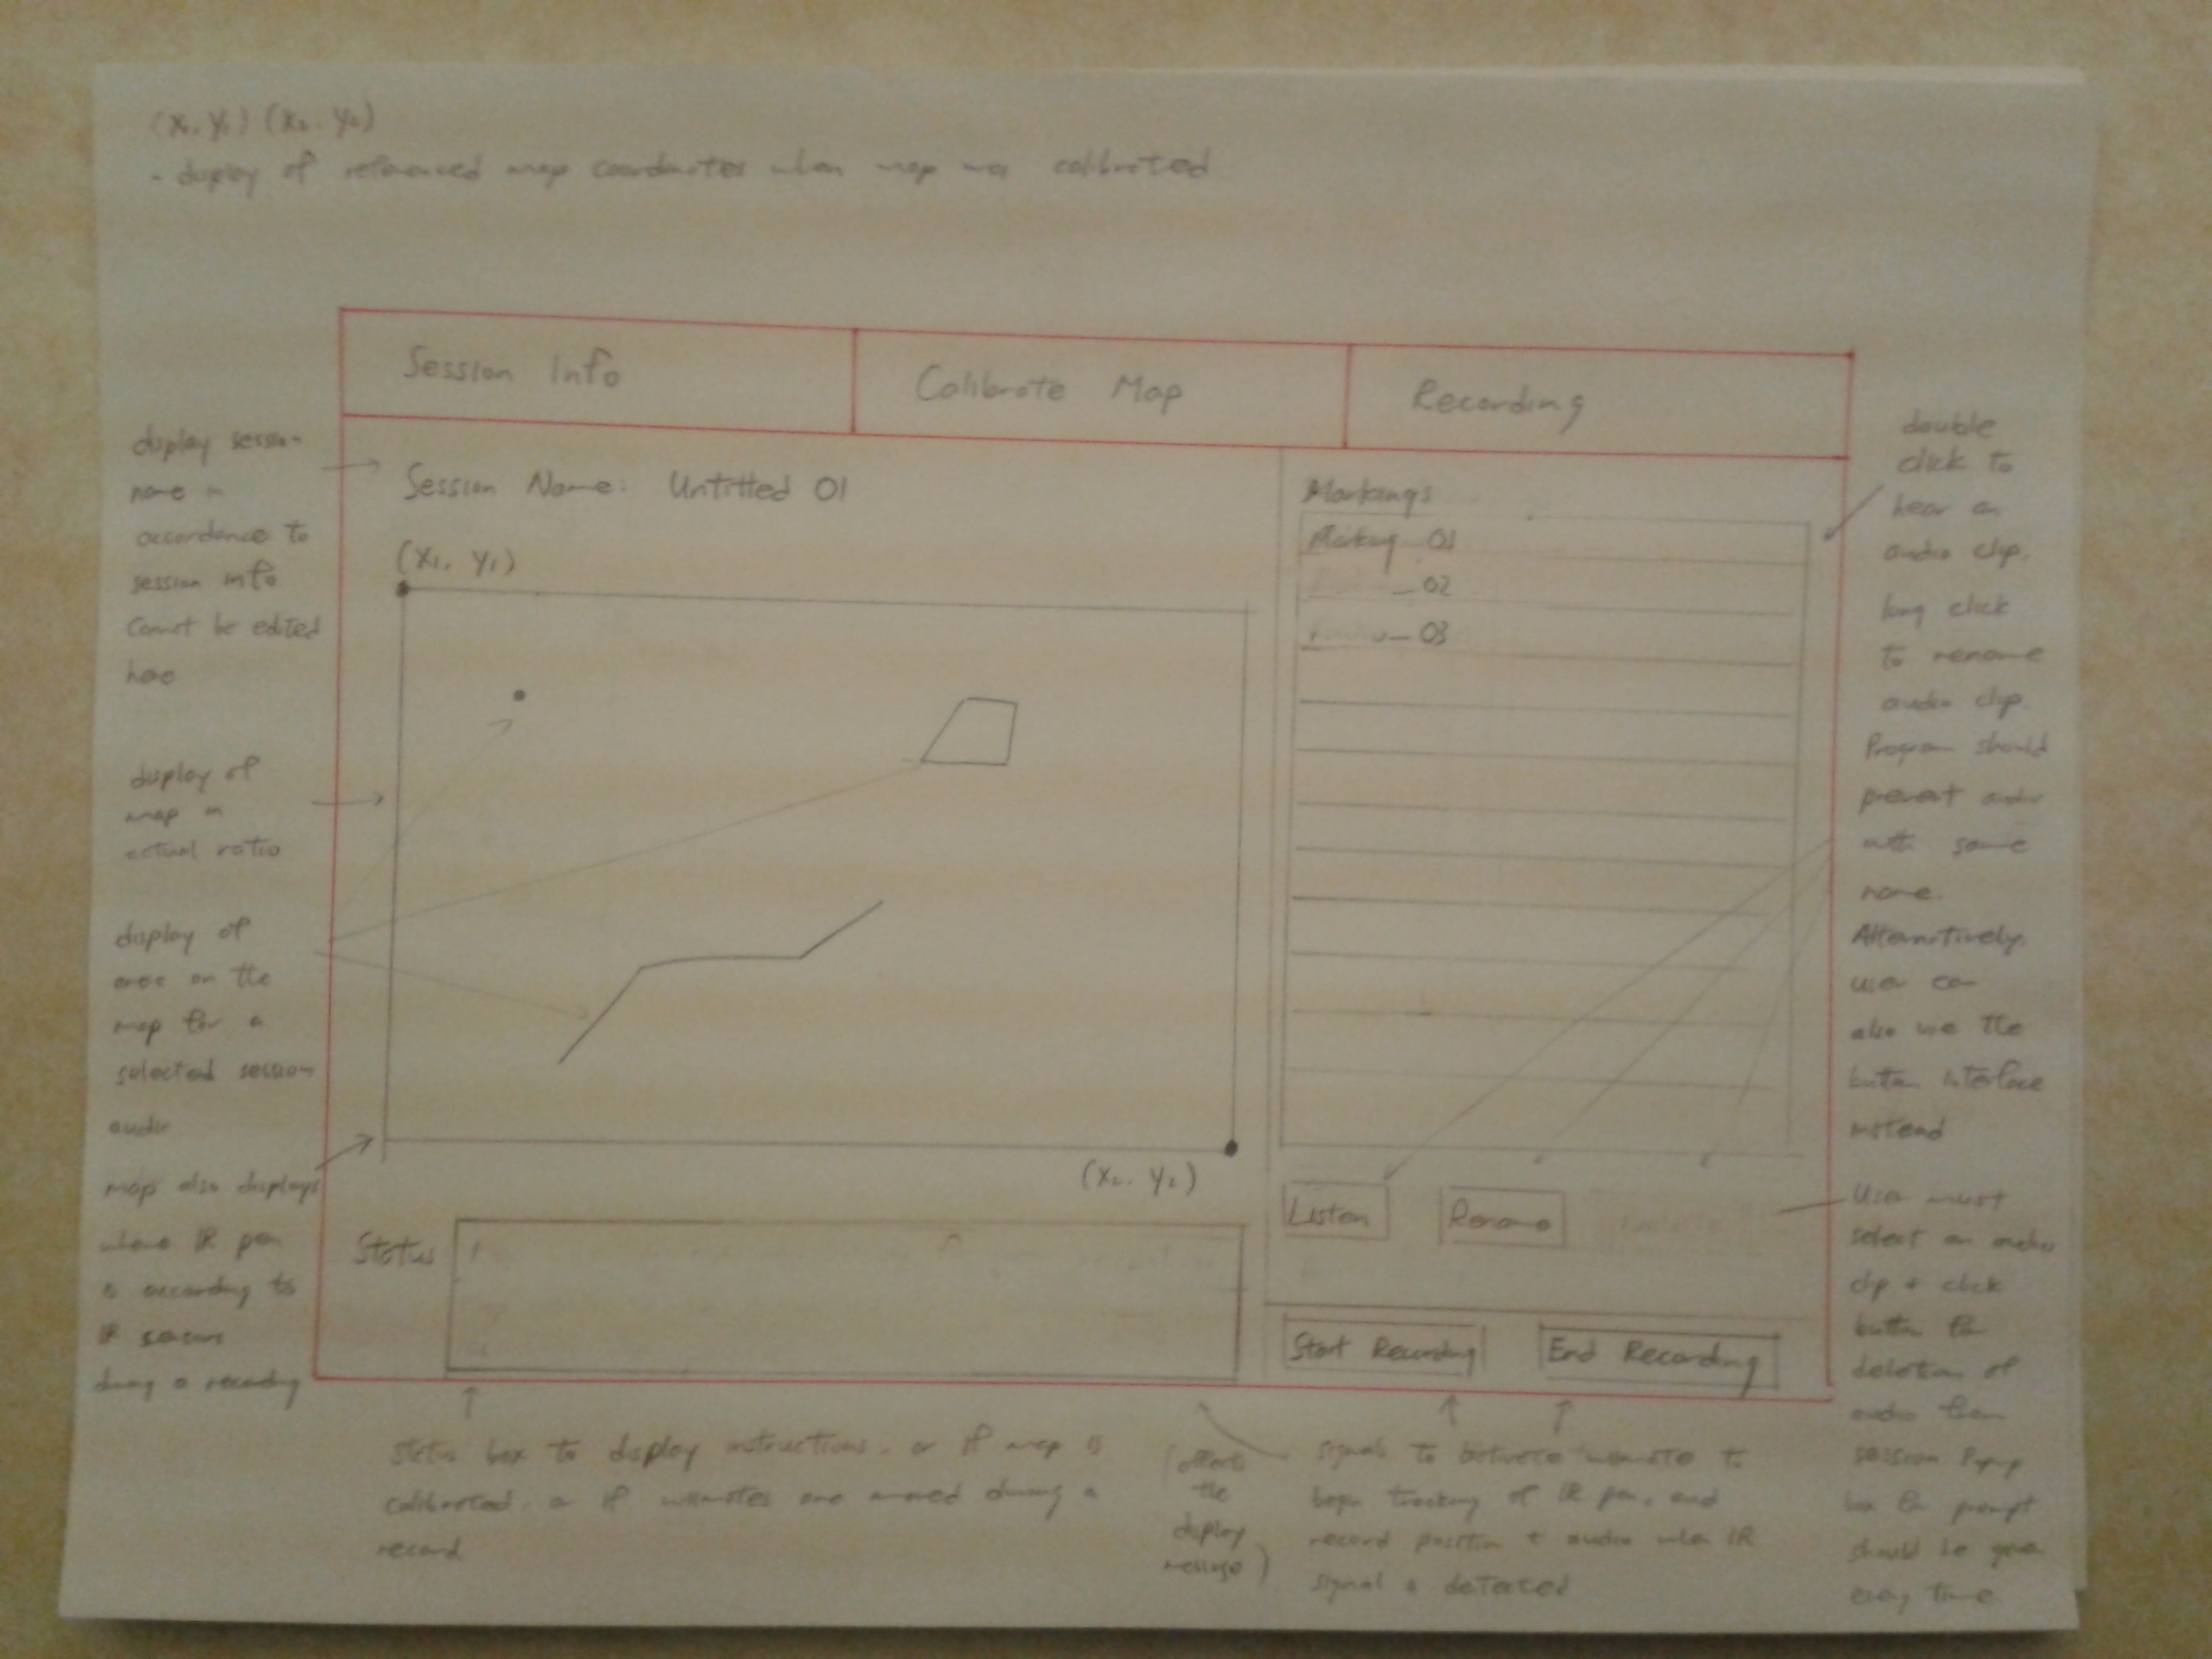 (x1, y1) (x2, y2)
- display of referenced map coordinates when map was calibrated
Session Info
Calibrate Map
Recording
display session
name in
accordance to
session info
Cannot be edited
here
display of
map in
actual ratio
display of
area on the
map for a
selected session
audio
map also displays
where IR pen
is according to
IR sensors
during a recording
Session Name: Untitled 01
(x1, y1)
(x2, y2)
Status
Markings
Marking_01
_02
_03
Listen
Rename
Start Recording
End Recording
double
click to
hear an
audio clip.
long click
to rename
audio clip.
Program should
prevent audio
with same
name.
Alternatively,
user can
also use the
button interface
instead
User must
select an audio
clip + click
button for
deletion of
audio from
session Popup
box for prompt
should be given
every time.
status box to display instructions, or if map is
calibrated, or if wiimotes are moved during a
record
(affects
the
display
message)
signals to activate wiimote to
begin tracking of IR pen, and
record position + audio when IR
signal is detected